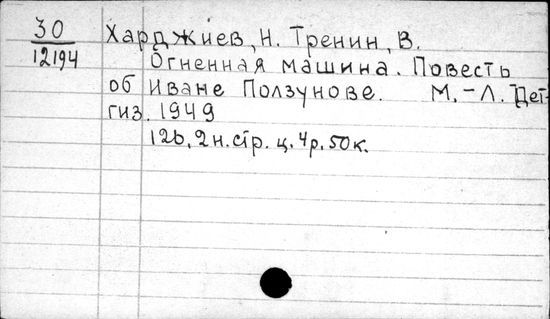 30
12194
Харджиев, Н. Тренин, В.
Огненная машина. Повесть
об Иване Ползунове. М.-Л. Дет-
гиз. 1949
126, 2 н. стр. ц. 4 р. 50 к.